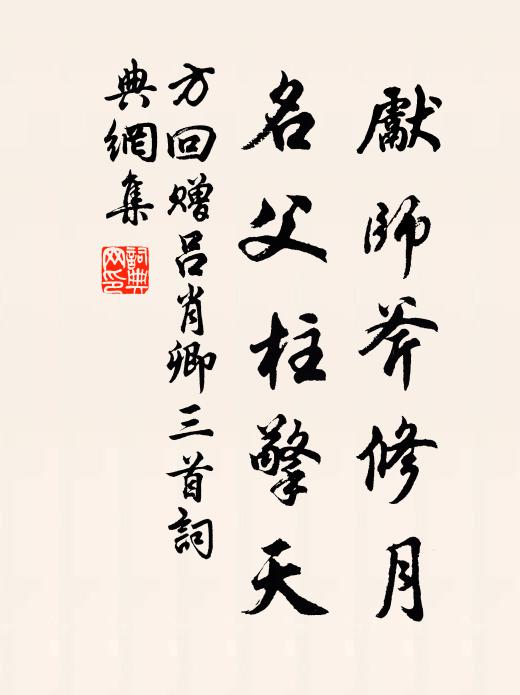 獻師斧修月
名父柱擎天
方回贈吕肖卿三首詞
典網集
詞典
网印